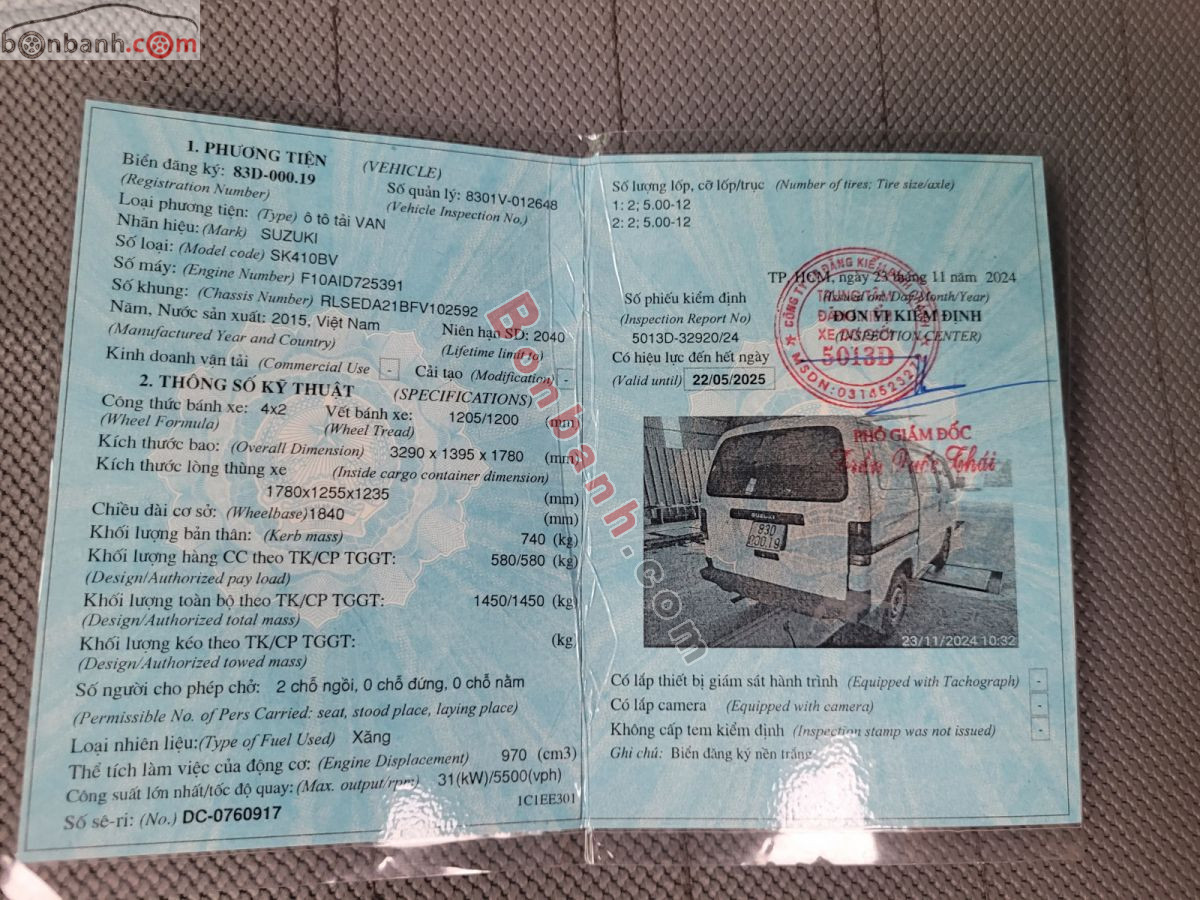 bonbanh.com
1. PHƯƠNG TIỆN (VEHICLE)
Biển đăng ký: 83D-000.19 Số quản lý: 8301V-012648
(Registration Number) (Vehicle Inspection No.)
Loại phương tiện: (Type) ô tô tải VAN
Nhãn hiệu: (Mark) SUZUKI
Số loại: (Model code) SK410BV
Số máy: (Engine Number) F10AID725391
Số khung: (Chassis Number) RLSEDA21BFV102592
Năm, Nước sản xuất: 2015, Việt Nam Niên hạn SD: 2040
(Manufactured Year and Country) (Lifetime limit to)
Kinh doanh vận tải (Commercial Use - Cải tạo (Modification) -
2. THÔNG SỐ KỸ THUẬT (SPECIFICATIONS)
Công thức bánh xe: 4x2 Vết bánh xe: 1205/1200 (mm)
(Wheel Formula) (Wheel Tread)
Kích thước bao: (Overall Dimension) 3290 x 1395 x 1780 (mm)
Kích thước lòng thùng xe (Inside cargo container dimension)
1780x1255x1235 (mm)
Chiều dài cơ sở: (Wheelbase) 1840 (mm)
Khối lượng bản thân: (Kerb mass) 740 (kg)
Khối lượng hàng CC theo TK/CP TGGT: 580/580 (kg)
(Design/Authorized pay load)
Khối lượng toàn bộ theo TK/CP TGGT: 1450/1450 (kg)
(Design/Authorized total mass)
Khối lượng kéo theo TK/CP TGGT: (kg)
(Design/Authorized towed mass)
Số người cho phép chở: 2 chỗ ngồi, 0 chỗ đứng, 0 chỗ nằm
(Permissible No. of Pers Carried: seat, stood place, laying place)
Loại nhiên liệu: (Type of Fuel Used) Xăng
Thể tích làm việc của động cơ: (Engine Displacement) 970 (cm3)
Công suất lớn nhất/tốc độ quay: (Max. output/rpm) 31(kW)/5500(vph)
1C1EE301
Số sê-ri: (No.) DC-0760917
Số lượng lốp, cỡ lốp/trục (Number of tires; Tire size/axle)
1: 2; 5.00-12
2: 2; 5.00-12
TP. HCM, ngày 23 tháng 11 năm 2024
(Issued on: Day/Month/Year)
Số phiếu kiểm định ĐƠN VỊ KIỂM ĐỊNH
(Inspection Report No) (INSPECTION CENTER)
5013D-32920/24
Có hiệu lực đến hết ngày
(Valid until) 22/05/2025
5013D
PHÓ GIÁM ĐỐC
SUZUKI
83D
000.19
23/11/2024 10:32
Có lắp thiết bị giám sát hành trình (Equipped with Tachograph) -
Có lắp camera (Equipped with camera) -
Không cấp tem kiểm định (Inspection stamp was not issued) -
Ghi chú: Biển đăng ký nền trắng
Bonbanh.com